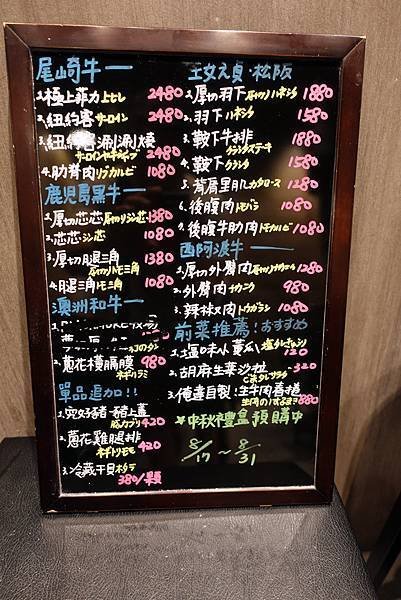 尾崎牛一
1.極上菲力 上ヒレ 2480
2.紐約客 サーロイン 2480
3.紐約客涮涮燒
サーロインヤキシャブ 2480
4.肋脊肉 リブカルビ 1080
鹿兒島黑牛一
1.厚切芯芯 厚切リシン芯 1380
2.芯芯 シン芯 1080
3.厚切腿三角 1380
厚切トモ三角
4.腿三角 トモ三角 1080
澳洲和牛一
2.蔥花橫膈膜 980
ネギハラミ
單品追加!!
豚カブリ 420
2.蔥花雞腿排
ネギトリモモ 420
3.冷藏干貝 ホタテ
380/顆
松阪
1.厚切羽下 厚切リハネシタ 1880
2.羽下 ハネシタ 1580
3.鞍下牛排 1880
クラシタステーキ
4.鞍下 クラシタ 1580
5.背肩里肌 カタロース 1280
6.後腹肉 トモバラ 1080
7.後腹牛肋肉 トモカルビ 1080
西阿波牛一
1.厚切外臂肉 1280
2.外臂肉 980
3.辣椒肉 トウガラシ 1080
前菜推薦!おすすめ
黃瓜 120
2.胡麻生菜沙拉 320
ゴマダレサラダ
3.俺達自製!生牛肉香捲
880
*中秋禮盒預購中
8/17~8/31